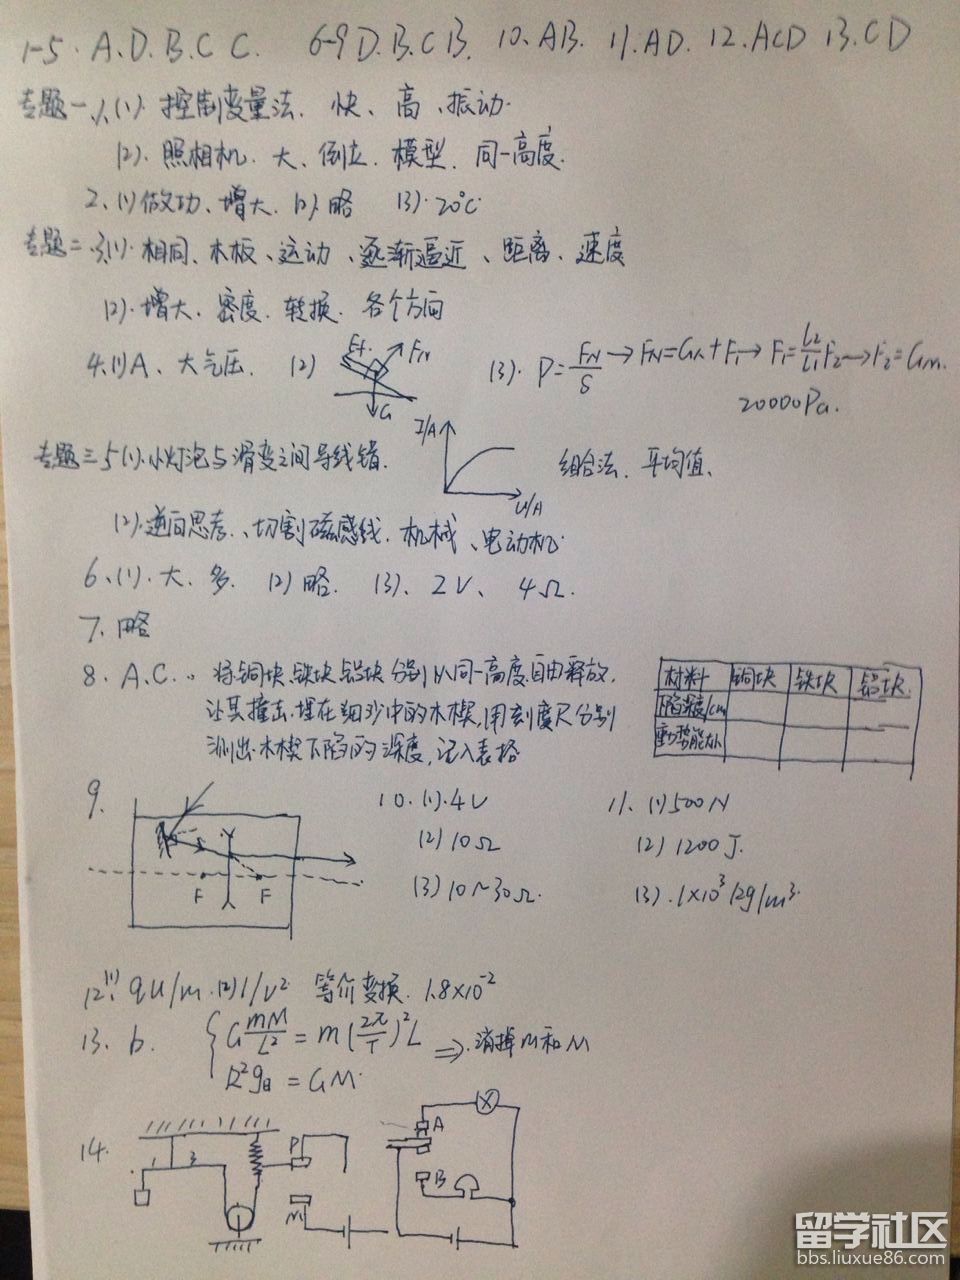 1-5. A.D.B.C C. 6-9 D.B.C B. 10. AB. 11. AD. 12. ACD 13. CD
专题一、1、(1). 控制变量法、快、高、振动.
(2). 照相机、大、倒立、模型、同一高度.
2、(1)做功、增大. (2)略 (3). 20℃
专题二、3(1). 相同、木板、运动、逐渐逼近、距离、速度
(2). 增大、密度、转换、各个方向
4.(1)A、大气压. (2) FN G (3). P=FN/S→FN=G人+F1→F1=L2/L1 F2→F2=GM.
20000Pa.
专题三 5(1). 小灯泡与滑变之间导线错. I/A U/A 组合法、平均值、
(2). 逆向思考、切割磁感线、机械、电动机.
6、(1). 大、多. (2)略. (3)、2V、4Ω.
7、略
8. A.C.. 将铜块、铁块、铝块分别从同一高度自由释放,
让其撞击埋在细沙中的木楔,用刻度尺分别
测出木楔下陷的深度,记入表格
材料 铜块 铁块 铝块
下陷深度/cm
重力势能大小
9. F F
10. (1). 4V
(2) 10Ω
(3) 10~30Ω.
11. (1) 500N
(2) 1200J.
(3). 1×10³kg/m³
12、(1) qU/m. (2) 1/v² 等价变换. 1.8×10⁻²
13. b. { G mM/L² = m(2π/T)²L ⇒ 消掉m和M
R²g月 = GM.
14. P M A B
留学社区
bbs.liuxue86.com